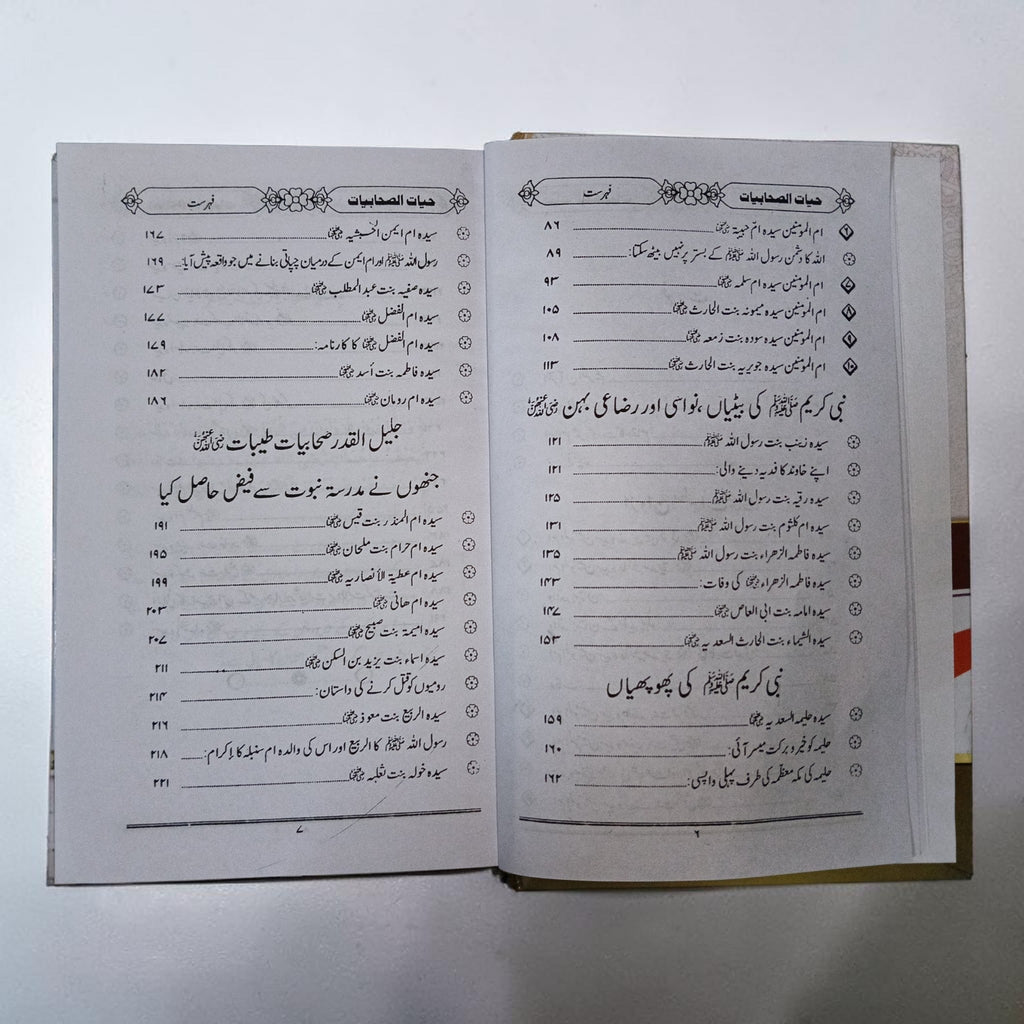 حیات الصحابیات فہرست
ام المؤمنین سیدہ امّ حبیبۃ رضی اللہ عنہا ۸۶
اللہ کا دشمن رسول اللہ ﷺ کے بستر پر نہیں بیٹھ سکتا: ۸۹
ام المؤمنین سیدہ ام سلمہ رضی اللہ عنہا ۹۳
ام المؤمنین سیدہ میمونہ بنت الحارث رضی اللہ عنہا ۱۰۵
ام المؤمنین سیدہ سودہ بنت زمعہ رضی اللہ عنہا ۱۰۸
ام المؤمنین سیدہ جویریہ بنت الحارث رضی اللہ عنہا ۱۱۳
نبی کریم ﷺ کی بیٹیاں ،نواسی اور رضاعی بہن رضی اللہ عنہن
سیدہ زینب بنت رسول اللہ ﷺ ۱۲۱
اپنے خاوند کا فدیہ دینے والی: ۱۲۱
سیدہ رقیہ بنت رسول اللہ ﷺ ۱۲۵
سیدہ ام کلثوم بنت رسول اللہ ﷺ ۱۳۱
سیدہ فاطمہ الزھراء بنت رسول اللہ ﷺ ۱۳۵
سیدہ فاطمہ الزھراء رضی اللہ عنہا کی وفات: ۱۴۳
سیدہ امامہ بنت ابی العاص رضی اللہ عنہا ۱۴۷
سیدہ الشیماء بنت الحارث السعدیہ رضی اللہ عنہا ۱۵۳
نبی کریم ﷺ کی پھوپھیاں
سیدہ حلیمہ السعدیہ رضی اللہ عنہا ۱۵۹
حلیمہ کو خیر و برکت میسر آئی: ۱۶۰
حلیمہ کی مکہ معظمہ کی طرف پہلی واپسی: ۱۶۲
۶
حیات الصحابیات فہرست
سیدہ ام ایمن الحبشیہ رضی اللہ عنہا ۱۶۷
رسول اللہ ﷺ اور ام ایمن کے درمیان چپاتی بنانے میں جو واقعہ پیش آیا: ۱۶۹
سیدہ صفیہ بنت عبد المطلب رضی اللہ عنہا ۱۷۳
سیدہ ام الفضل رضی اللہ عنہا ۱۷۷
سیدہ ام الفضل رضی اللہ عنہا کا کارنامہ: ۱۷۹
سیدہ فاطمہ بنت أسد رضی اللہ عنہا ۱۸۲
سیدہ ام رومان رضی اللہ عنہا ۱۸۶
جلیل القدر صحابیات طیبات رضی اللہ عنہن
جنھوں نے مدرسۃ نبوت سے فیض حاصل کیا
سیدہ ام المنذر بنت قیس رضی اللہ عنہا ۱۹۱
سیدہ ام حرام بنت ملحان رضی اللہ عنہا ۱۹۵
سیدہ ام عطیۃ الأنصاریہ رضی اللہ عنہا ۱۹۹
سیدہ ام ھانی رضی اللہ عنہا ۲۰۳
سیدہ امیمۃ بنت صبیح رضی اللہ عنہا ۲۰۷
سیدہ اسماء بنت یزید بن السکن رضی اللہ عنہا ۲۱۱
رومیوں کو قتل کرنے کی داستان: ۲۱۴
سیدہ الربیع بنت معوذ رضی اللہ عنہا ۲۱۶
رسول اللہ ﷺ کا الربیع اور اس کی والدہ ام سنبلہ کا إکرام: ۲۱۸
سیدہ خولہ بنت ثعلبہ رضی اللہ عنہا ۲۲۱
۷